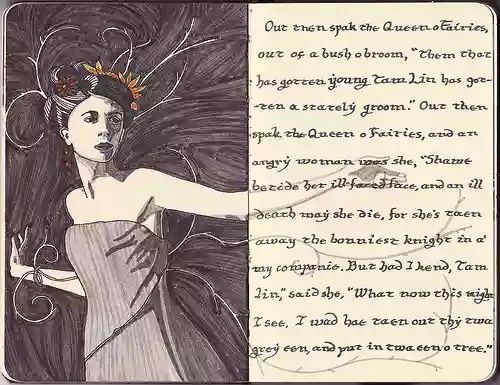 Out then spak the Queen o Fairies,
out of a bush o broom, "Them that
has gotten young Tam Lin has got-
-ten a stately groom." Out then
spak the Queen o Fairies, and an
angry woman was she, "Shame
betide her ill-faced face, and an ill
death may she die, for she's taen
away the bonniest knight in a'
my companie. But had I kend, Tam
Lin," said she, "What now this night
I see, I wad hae taen out thy twa
grey een, and put in twa een o tree."